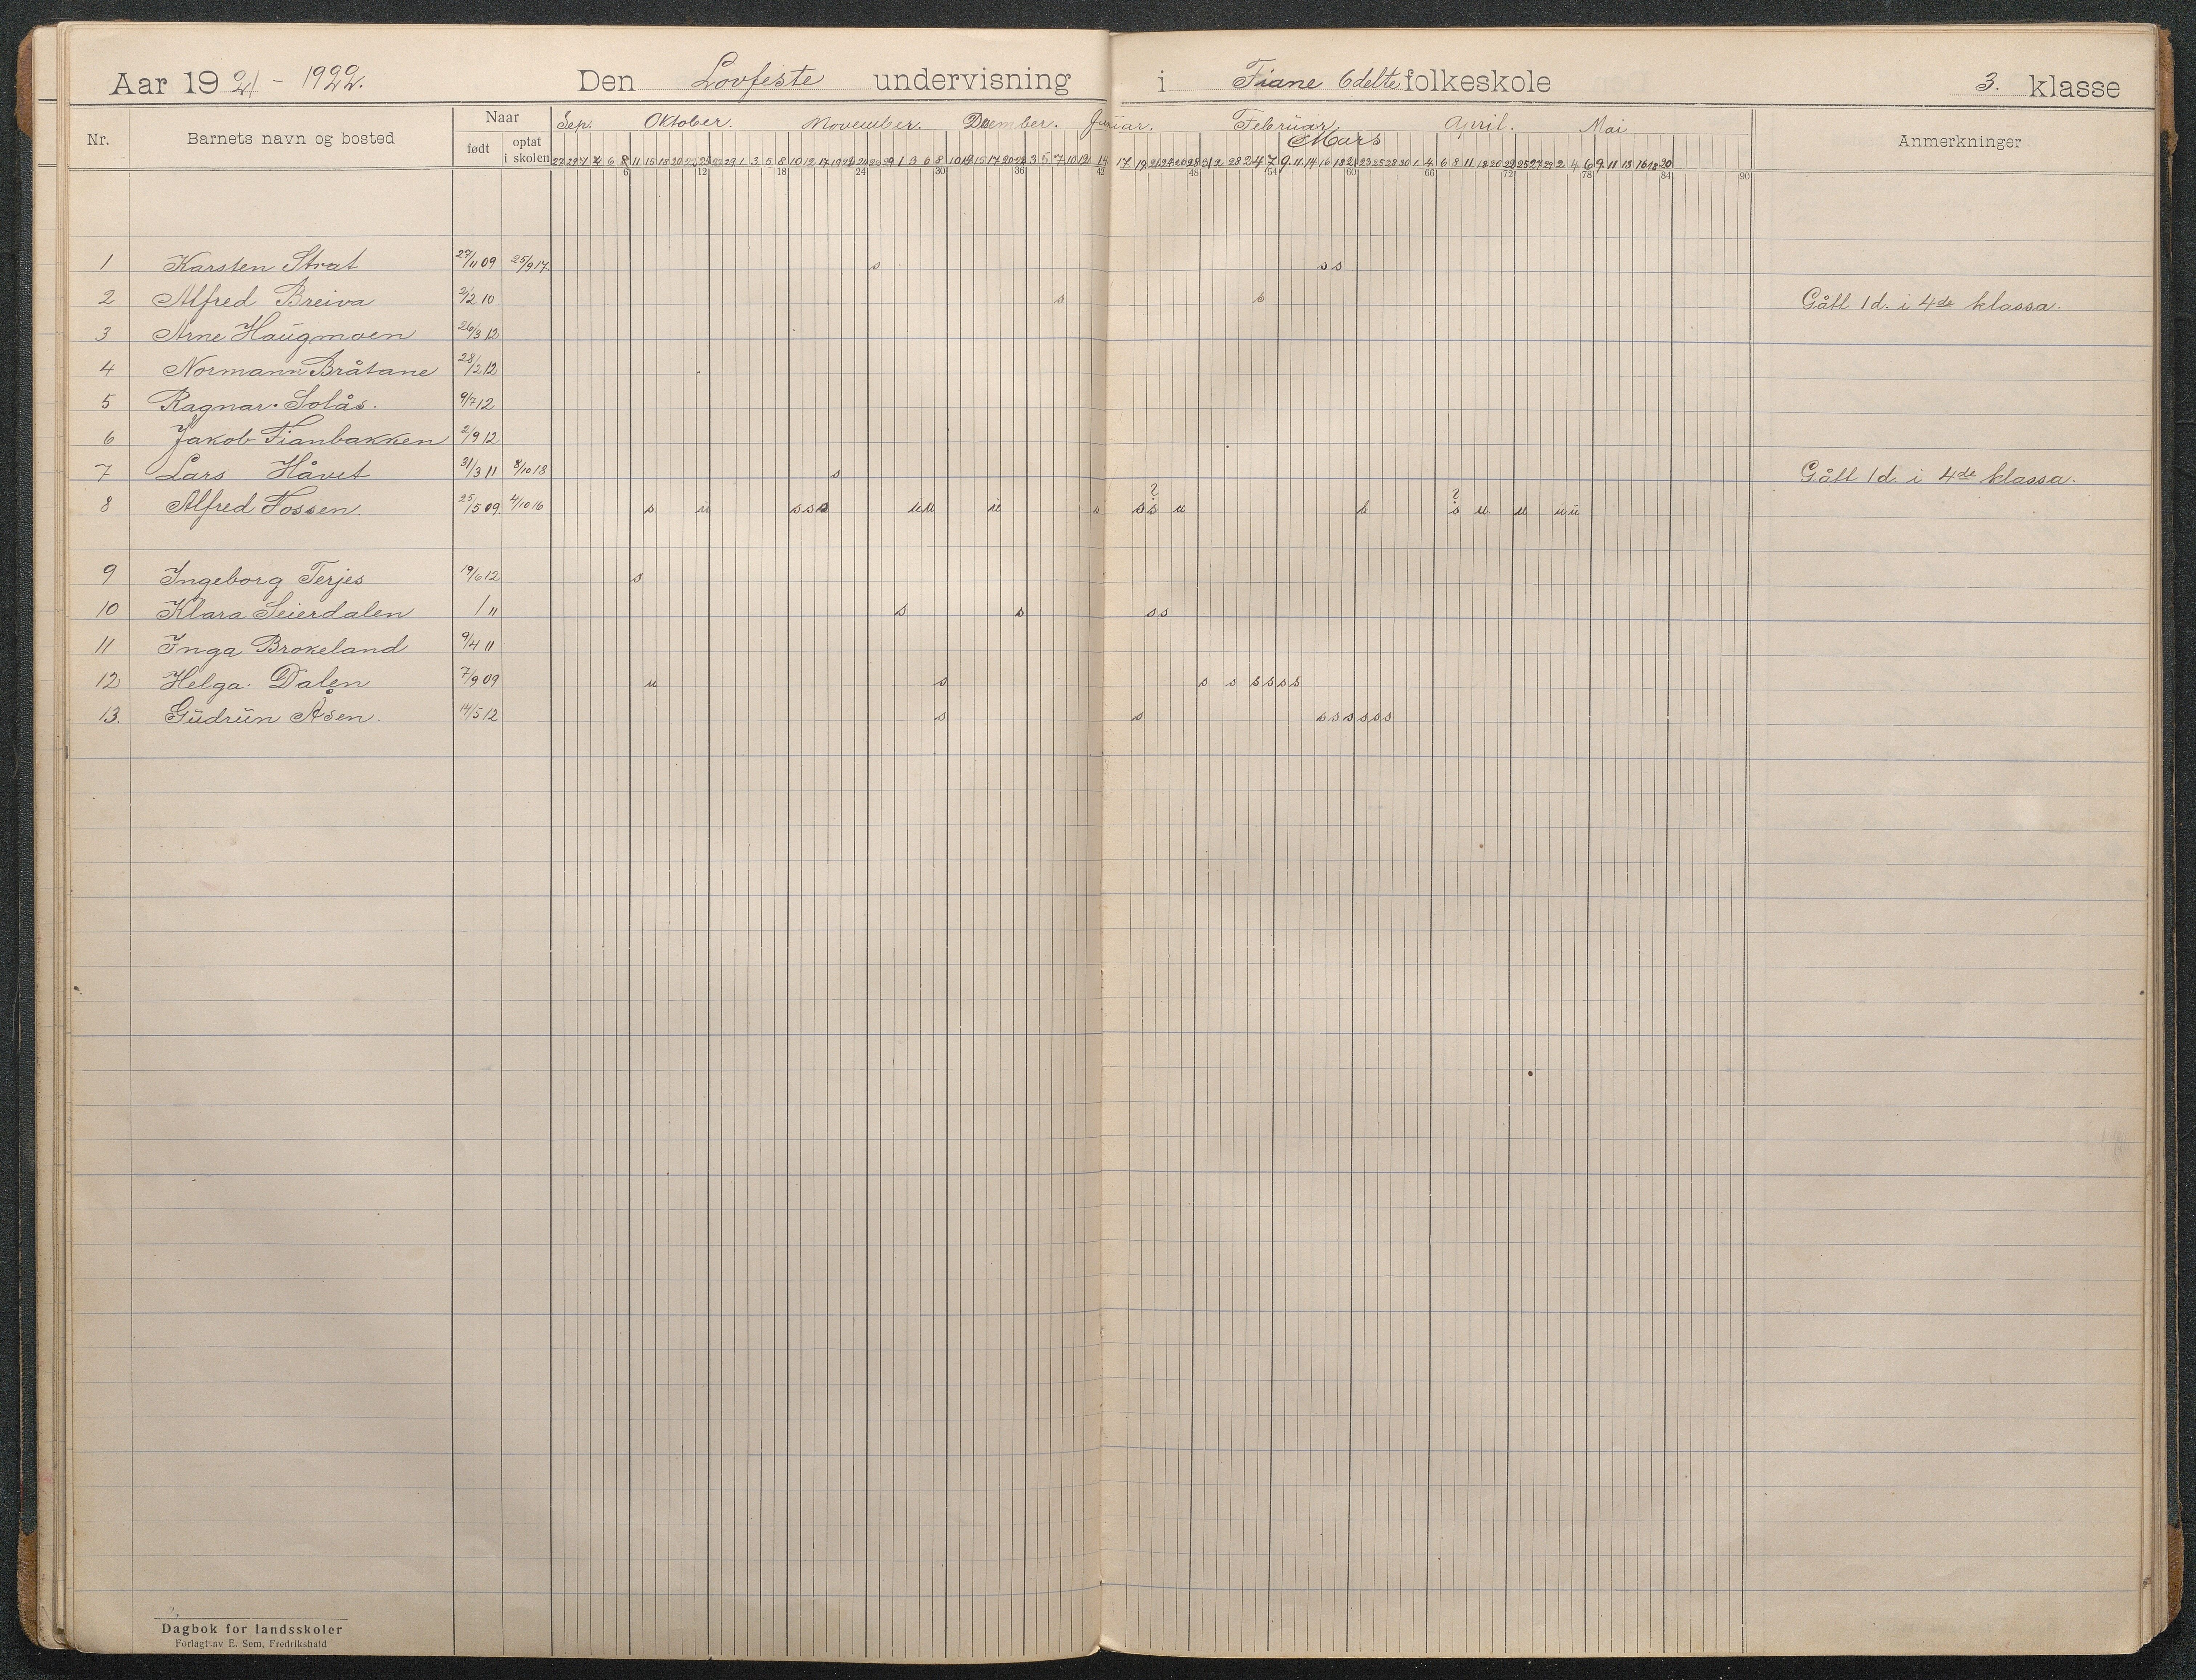 Aar 1921 - 1922. Den Lovfeste undervisning i Fiane 6delte folkeskole 3. klasse
Nr. Barnets navn og bosted Naar født optat i skolen Sep. Oktober. November. December. Januar. Februar. Mars April. Mai Anmerkninger
6 12 18 24 30 36 42 48 54 60 66 72 78 84 90
1 Karsten Strat 27/11 09 25/9 17 s s s
2 Alfred Breiva 2/2 10 s s Gått 1 d. i 4de klassa.
3 Arne Haugmoen 26/3 12
4 Normann Bråtane 28/2 12
5 Ragnar Solås. 9/7 12
6 Jakob Fianbakken 2/9 12
7 Lars Håvet 31/3 11 8/10 18 s Gått 1 d. i 4de klassa.
8 Alfred Fossen. 25/5 09 4/10 16 s u s s s u u u s s s u s s u u u u
9 Ingeborg Terjes 19/6 12 s
10 Klara Seierdalen / 11 s s s s
11 Inga Brokeland 9/4 11
12 Helga Dalen 7/9 09 u s s s s s s s
13. Gudrun Åsen. 14/5 12 s s s s s s s s
Dagbok for landsskoler
Forlagt av E. Sem, Fredrikshald